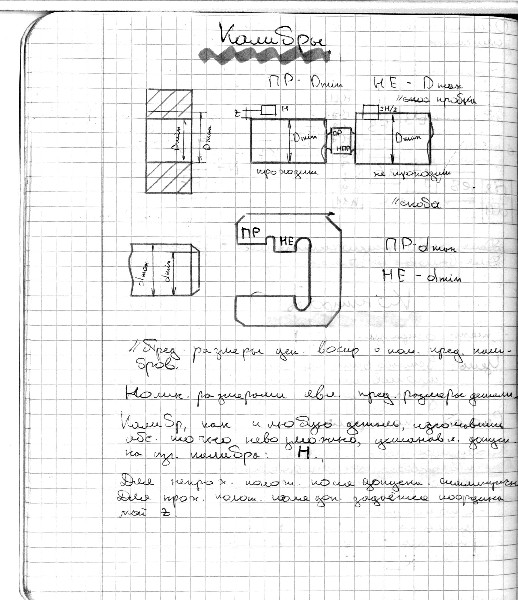 Калибры
ПР - Dmin НЕ - Dmax
//кло пробки
z H ±H/2
Dmin Dmax Dmin ПР НПР Dmax
проходит не проходит
//скоба
ПР НЕ ПР-dmax
dmax dmin НЕ-dmin
//Пред. размеры дет. воспр с пом. пред. кали-
бров.
Номин. размерами явл. пред. размеры детали.
Калибр, как и любую деталь, изготовить
абс. точно невозможно, установл. допуск
на изг. калибры: H.
Для непрох. полож. поля допуска симметричн
Для прох. полож. поля доп. задаётся координа
той z